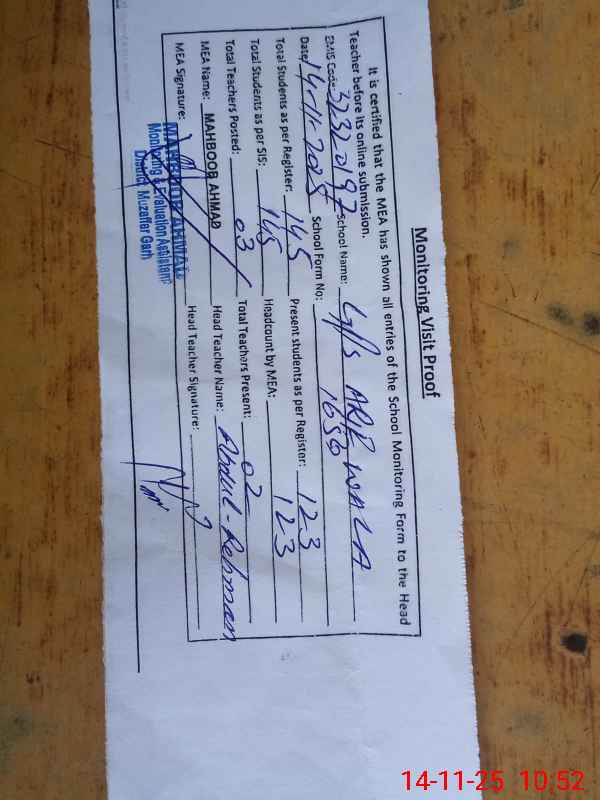 Monitoring Visit Proof
It is certified that the MEA has shown all entries of the School Monitoring Form to the Head
Teacher before its online submission.
EMIS Code: 32320197 School Name: G/s ARIF WALA
Date: 14-11-2025 School Form No: 1656
Total Students as per Register: 145 Present students as per Register: 123
Total Students as per SIS: 145 Headcount by MEA: 123
Total Teachers Posted: 03 Total Teachers Present: 02
MEA Name: MAHBOOB AHMAD Head Teacher Name: Abdul-Rehman
MEA Signature: Head Teacher Signature:
MAHBOOB AHMAD
Monitoring & Evaluation Assistant
District Muzaffar Garh
14-11-25 10:52